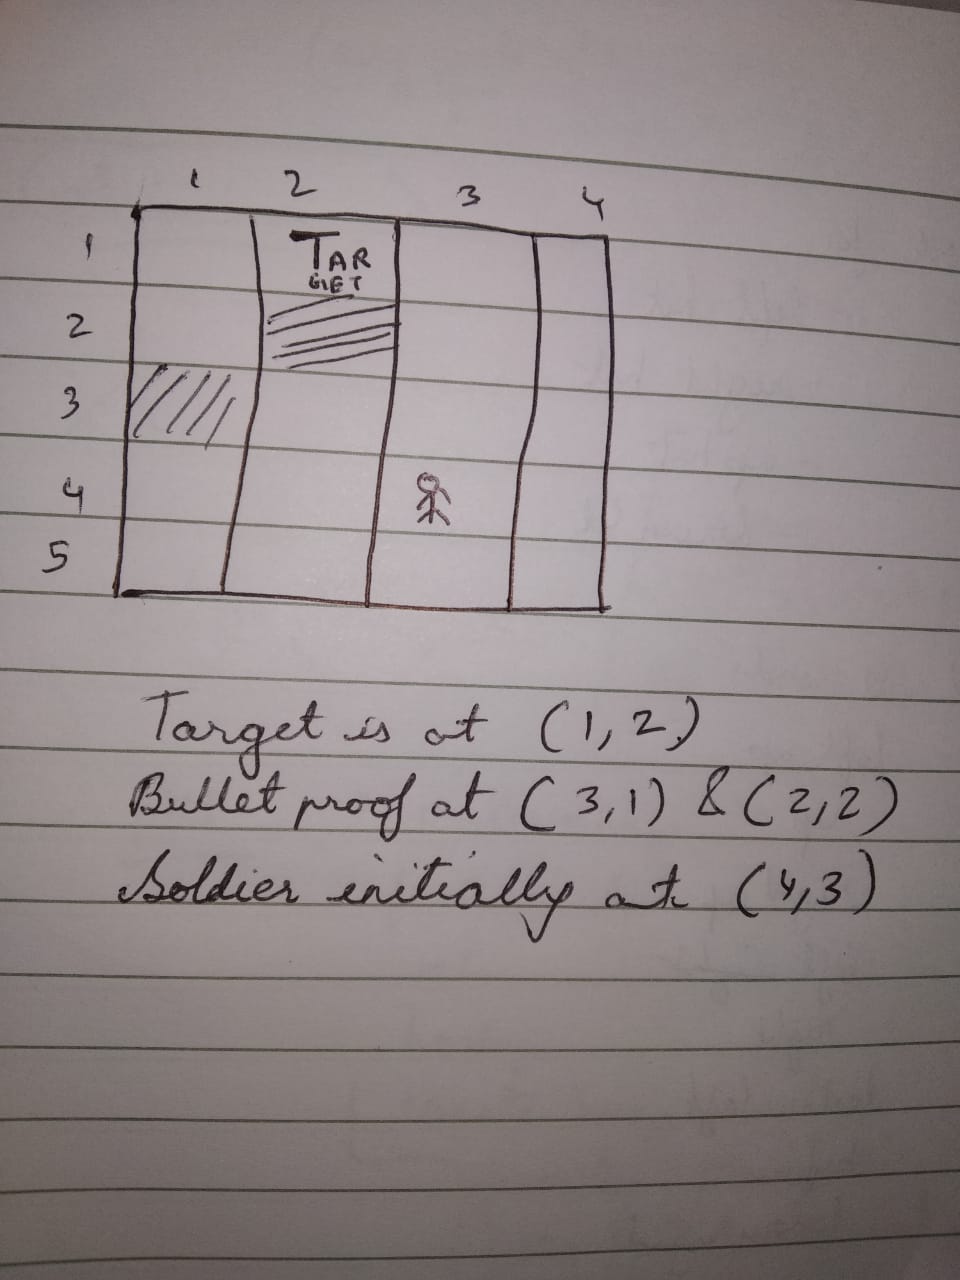 1 2 3 4
1
TAR
GET
2
3
4
5
Target is at (1,2)
Bullet proof at (3,1) & (2,2)
Soldier initially at (4,3)